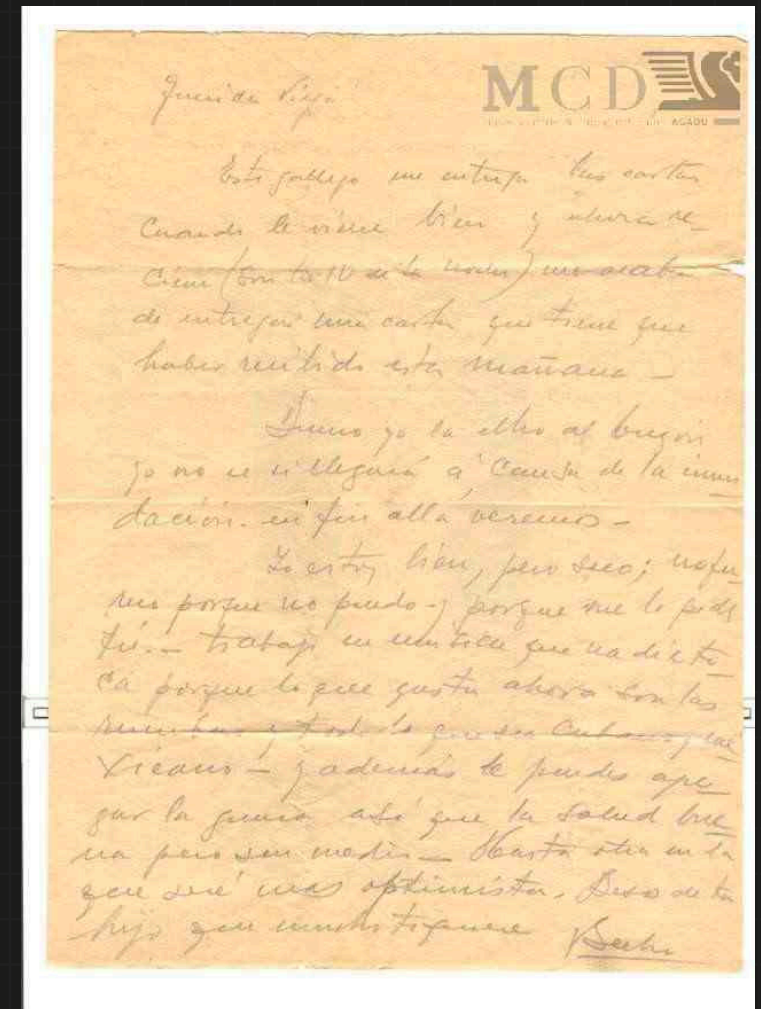 Querida Vieja
MCD
AGADU
Este gallego me entrega las cartas
cuando le viene bien y ahora re-
cién (son las 10 de la noche) me acaba
de entregar una carta que tiene que
haber recibido esta mañana –
Bueno yo la echo al buzón
yo no se si llegará á causa de la inun
dación. en fin allá veremos –
Yo estoy bien, pero seco; no fu-
mo porque no puedo y porque me lo pide
tú. – Trabajo en música que nadie to
ca porque lo que gusta ahora son las
rumbas y todo lo que sea Cubano y me
xicano – y además le puedes
la así que la salud bue
na pero sin medio – Hasta otra en la
que seré mas optimista. Beso de tu
hijo que mucho te quiere